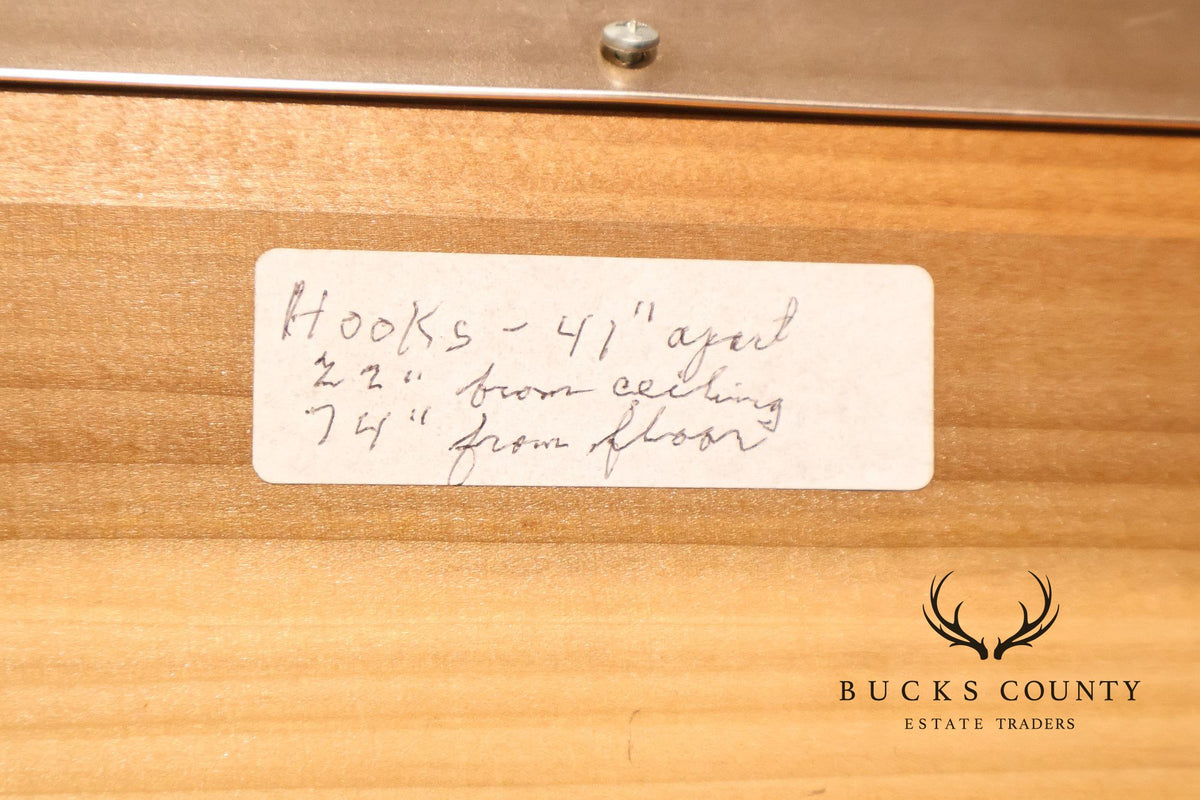 Hooks - 41" apart
22" from ceiling
74" from floor
BUCKS COUNTY
ESTATE TRADERS